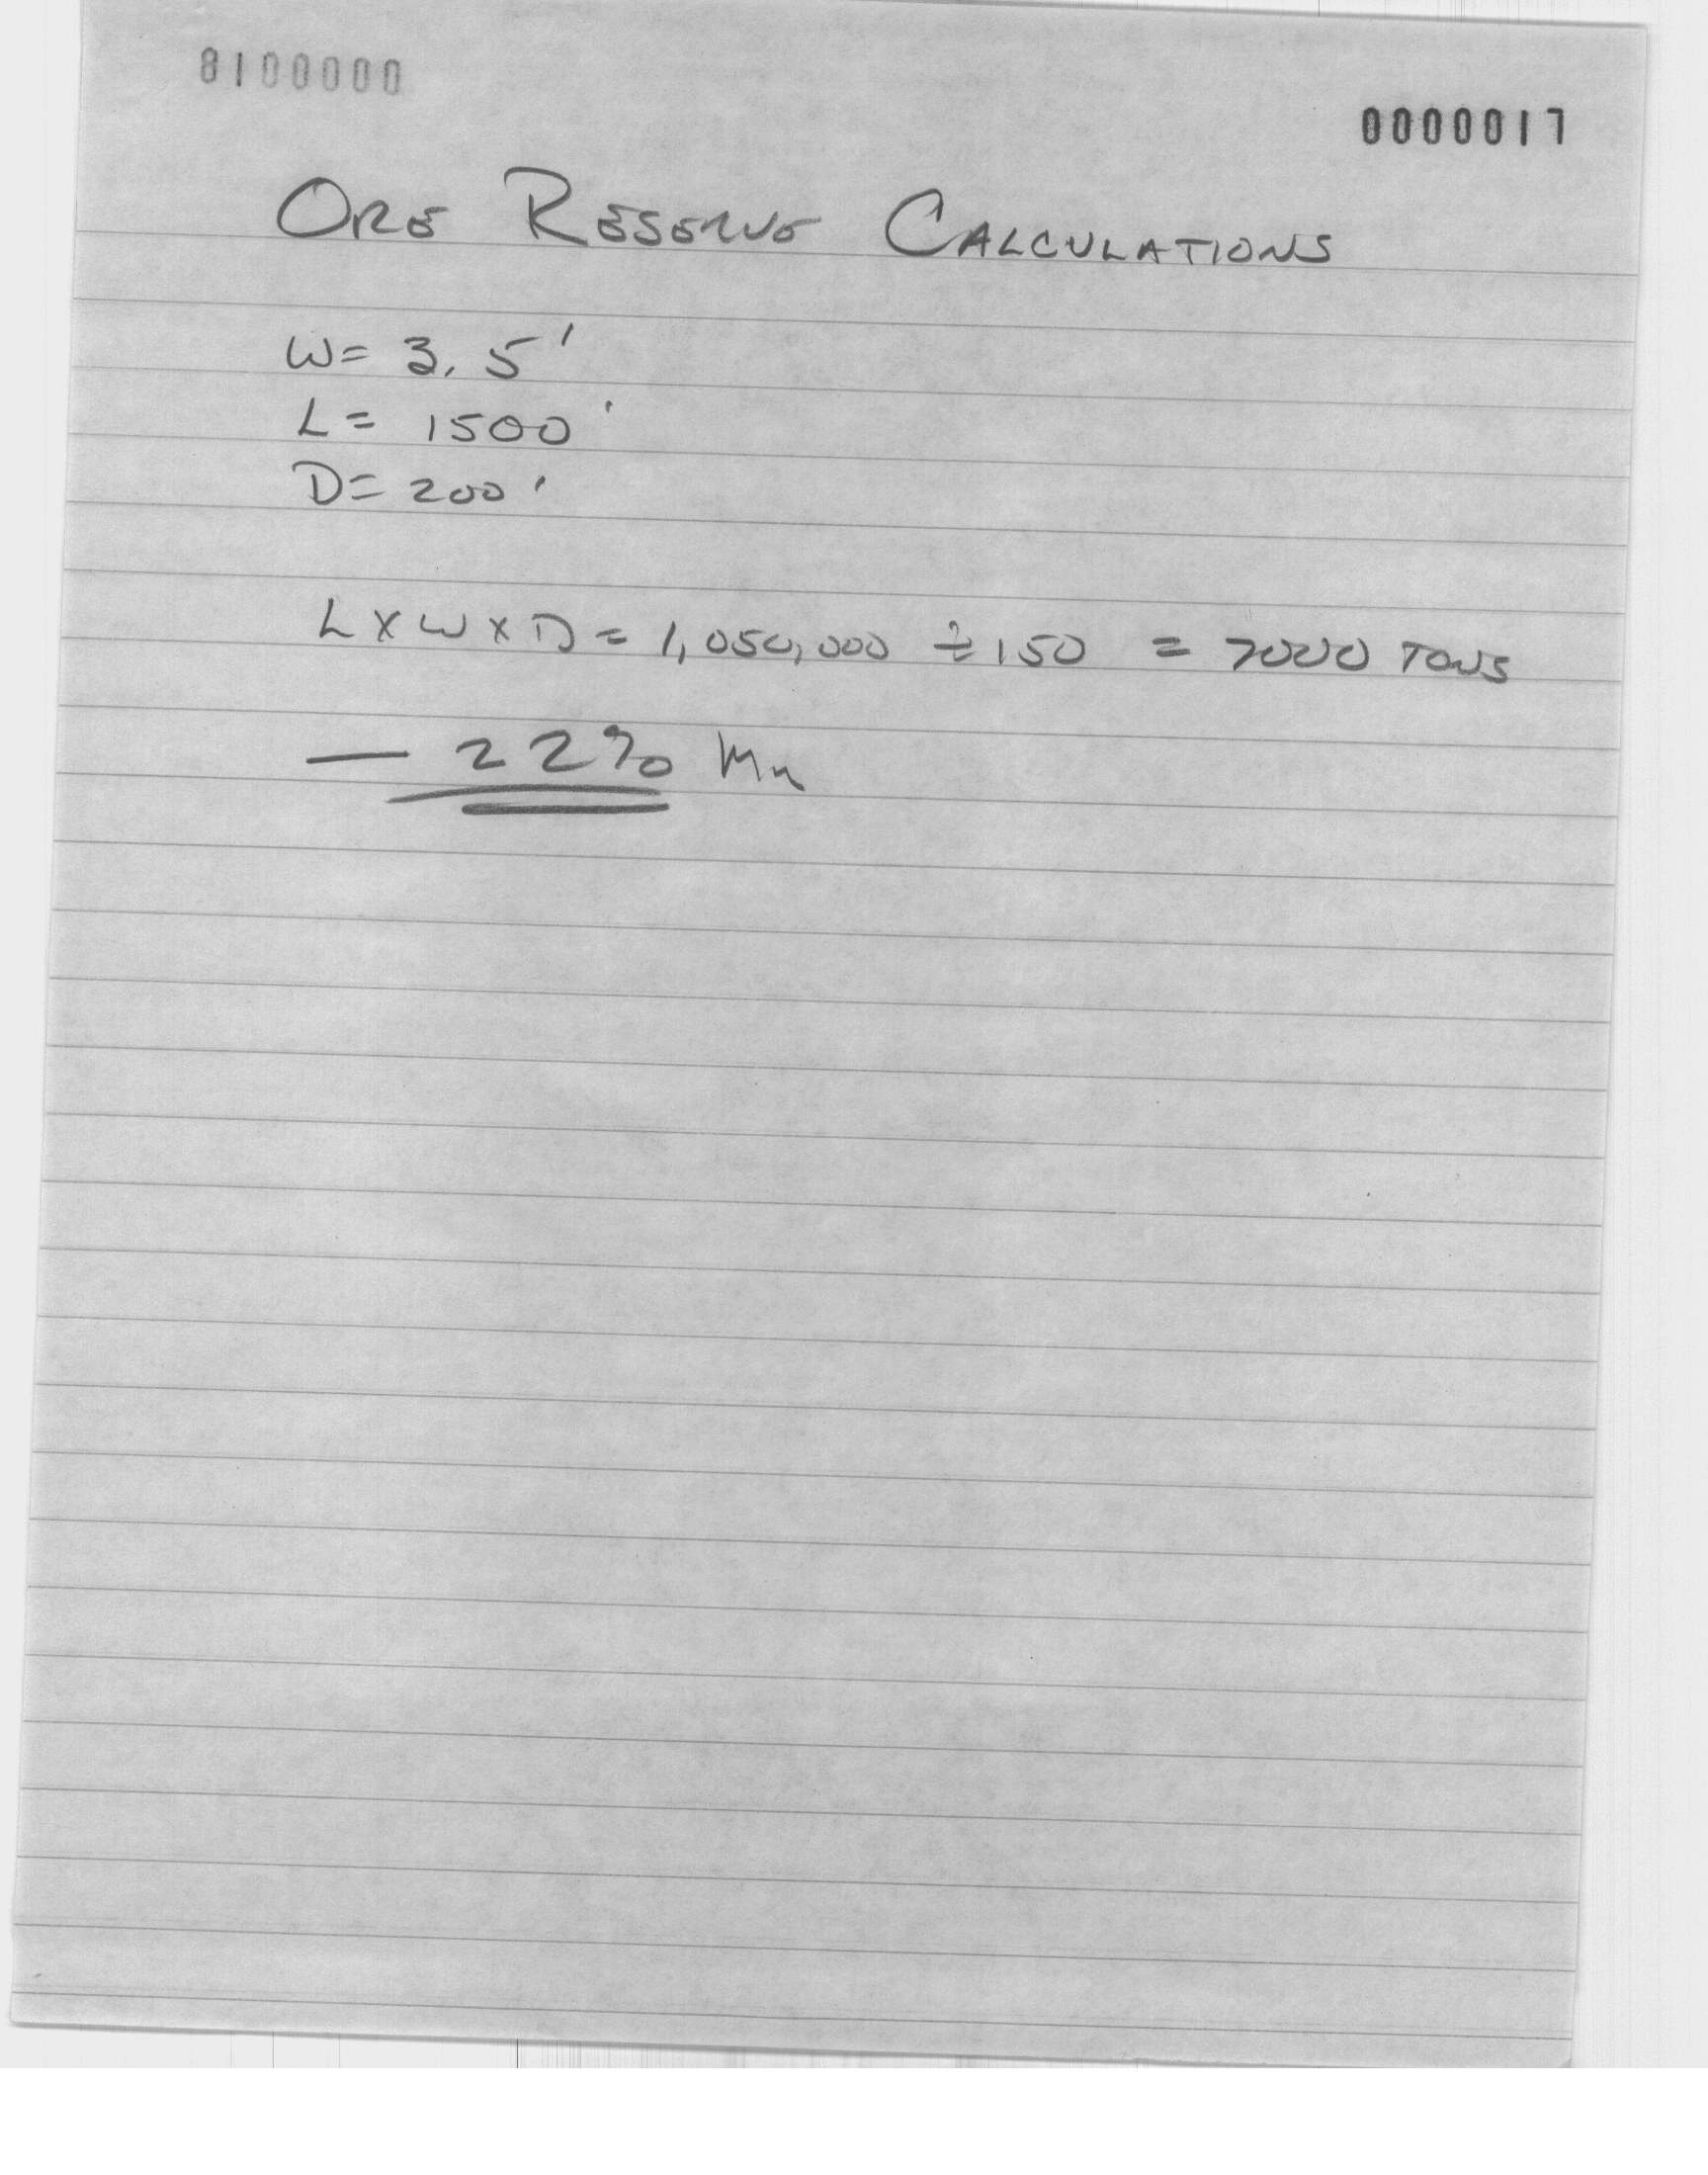 8100000
0000017
ORE RESERVE CALCULATIONS
W= 3.5'
L= 1500'
D= 200'
L x W x D = 1,050,000 ÷ 150 = 7000 TONS
— 22% Mn